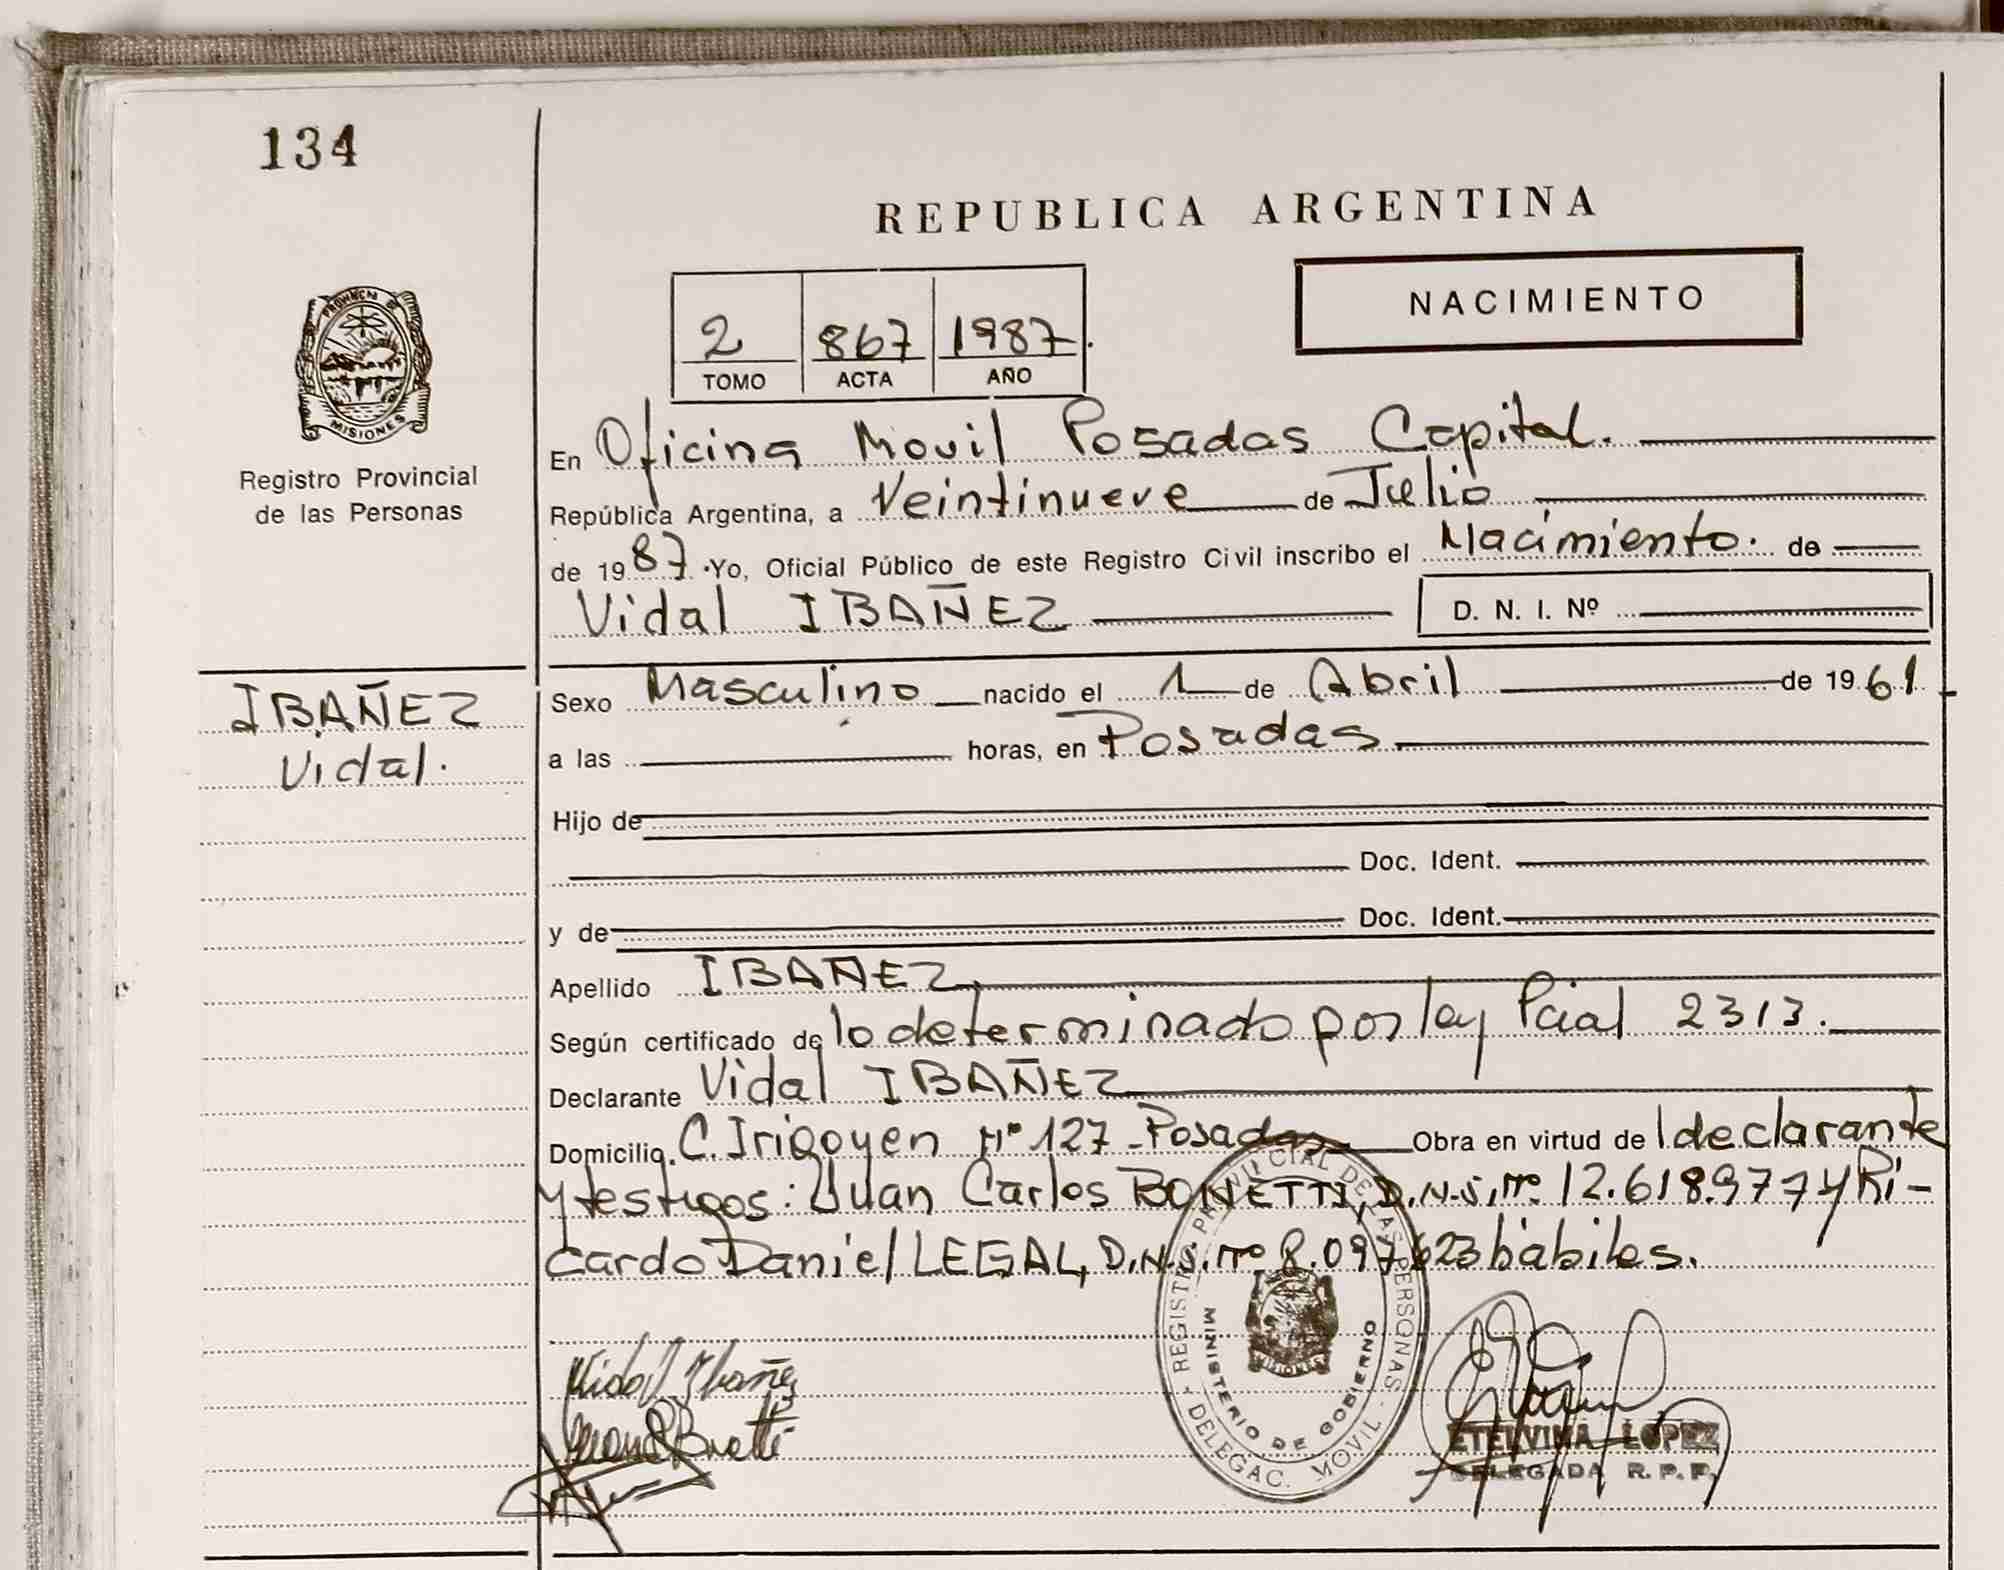 134
REPUBLICA ARGENTINA
NACIMIENTO
2 867 1987
TOMO ACTA AÑO
PROVINCIA DE
MISIONES
Registro Provincial
de las Personas
En Oficina Movil Posadas Capital.
República Argentina, a Veintinueve de Julio
de 1987 Yo, Oficial Público de este Registro Civil inscribo el Nacimiento. de
Vidal IBAÑEZ D. N. I. Nº
IBAÑEZ
Vidal.
Sexo Masculino nacido el 1 de Abril de 1961
a las horas, en Posadas
Hijo de
Doc. Ident.
y de Doc. Ident.
Apellido IBAÑEZ
Según certificado de lo determinado por ley Pcial 2313.
Declarante Vidal IBAÑEZ
Domicilio C. Irigoyen Nº 127 - Posadas Obra en virtud de l declarante
y testigos: Juan Carlos BONETTI, D.N.I. Nº 12.618.977 y Ri-
cardo Daniel LEGAL, D.N.I. Nº 8.097.623 hábiles.
REGISTRO PROVINCIAL DE LAS PERSONAS
MINISTERIO DE GOBIERNO
MISIONES
DELEGAC. MOVIL
Vidal Ibañez
ETELVINA LOPEZ
DELEGADA R. P. P.